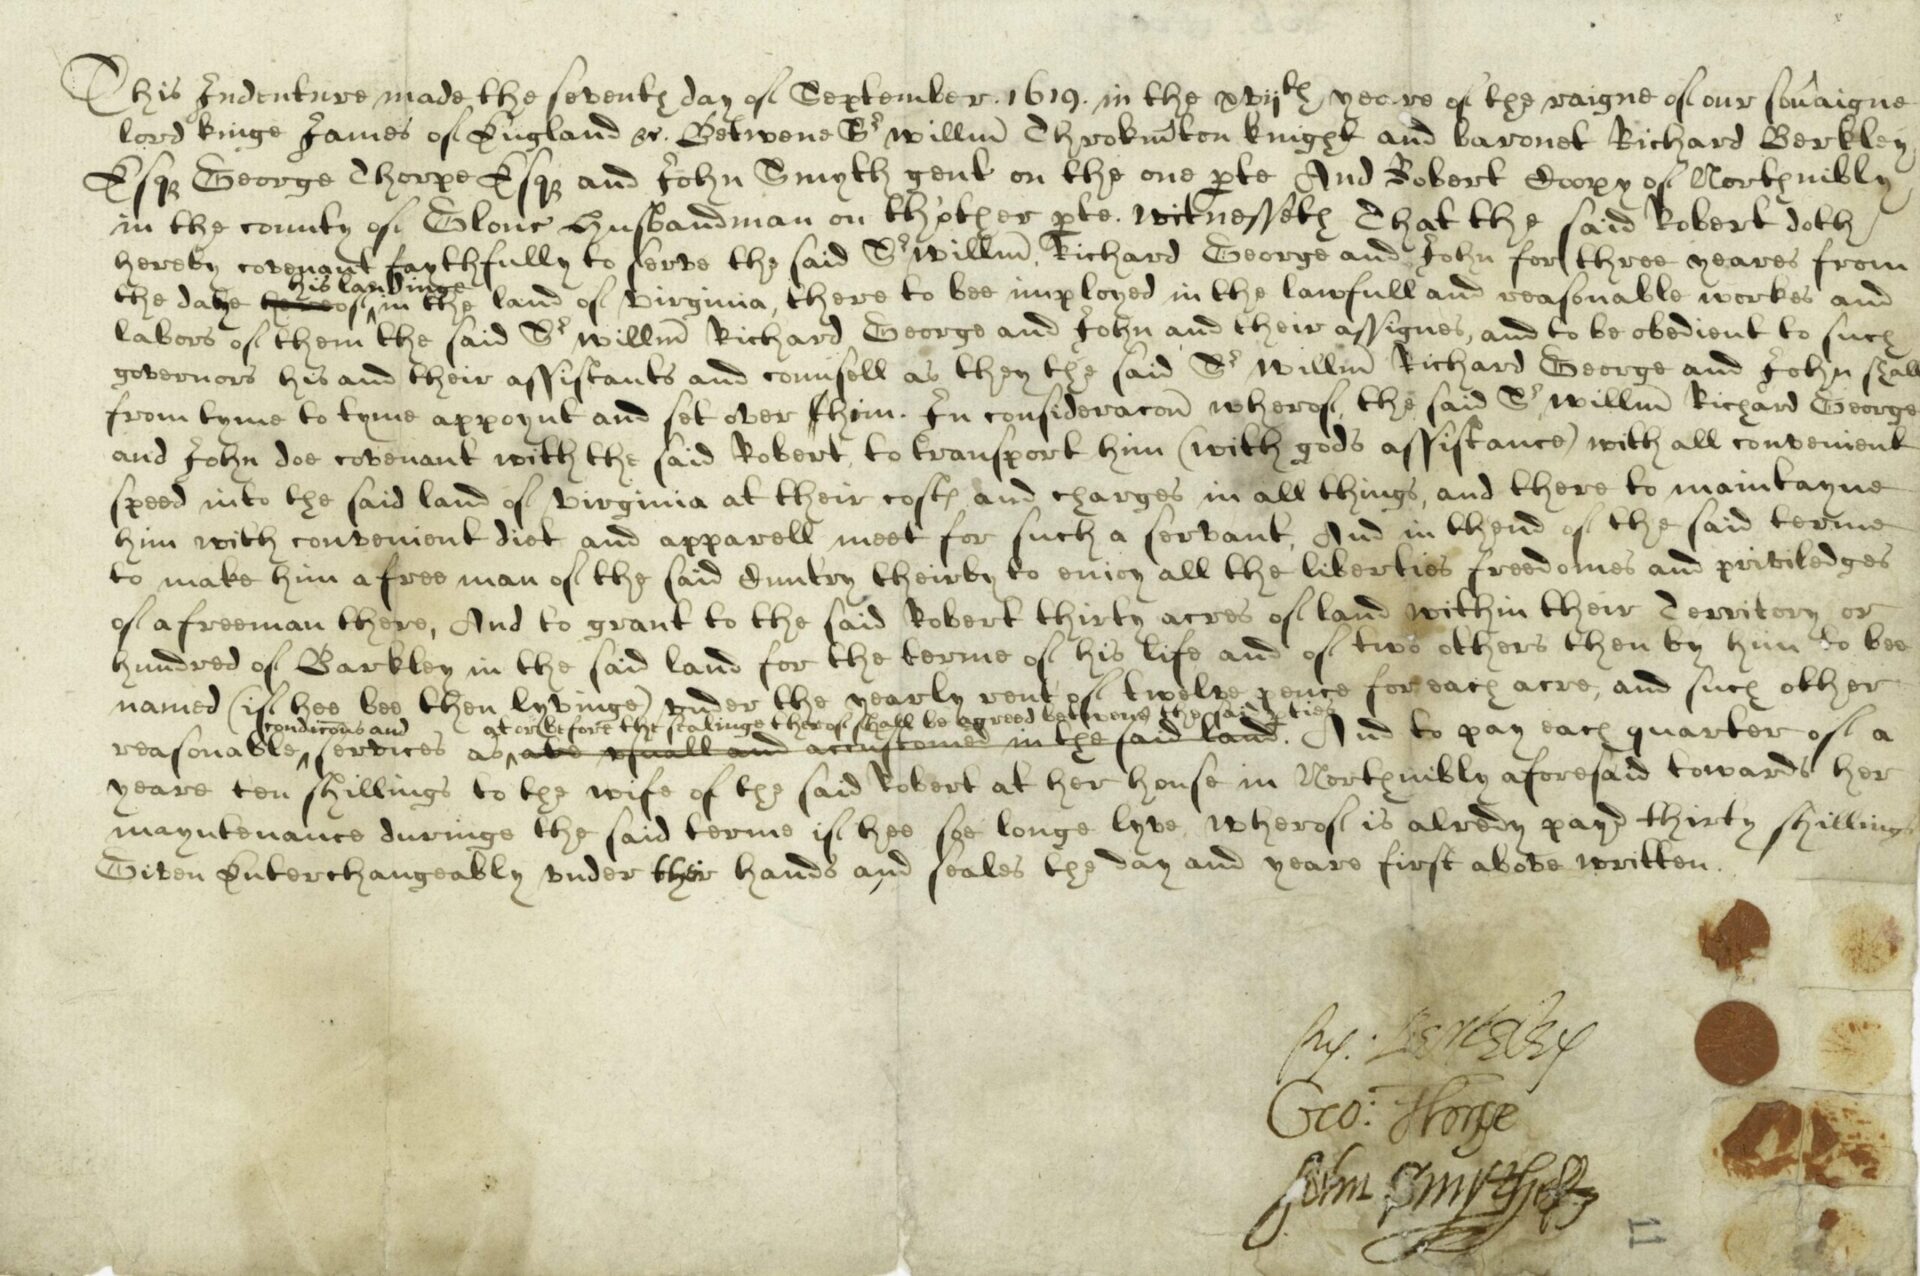 This Indenture made the seventh day of September. 1619. in the xvijth yeare of the raigne of our sov͠aigne
lord kinge James of England &c. Betwene Sr Willm̃ Throkm̃ton knight and baronet Richard Berkley
Esqꝫ George Thorpe Esqꝫ and John Smyth gent on the one ꝑte And Robert Coopy of Northnibly
in the county of Glouc husbandman on th'other ꝑte. Witnesseth That the said Robert doth
hereby covenant faythfully to serve the said Sr Willm̃, Richard George and John for three yeares from
his landinge
the daye hereof in the land of Virginia, there to bee imployed in the lawfull and reasonable workes and
labors of them the said Sr Willm̃ Richard George and John and their assignes, and to be obedient to such
governors his and their assistants and counsell as they the said Sr Willm̃ Richard George and John shall
from tyme to tyme appoynt and set over him. In consideracoñ wherof, the said Sr Willm̃ Richard George
and John doe covenant with the said Robert, to transport him (with gods assistance) with all convenient
speed into the said land of Virginia at their costs and charges in all things, and there to maintayne
him with convenient diet and apparell meet for such a servant, And in thend of the said terme
to make him a free man of the said Cuntry theirby to enioy all the liberties freedomes and priviledges
of a freeman there, And to grant to the said Robert thirty acres of land within their Territory or
hundred of Barkley in the said land for the terme of his life and of two others then by him to bee
named (if hee bee then lyvinge) vnder the yearly rent of twelve pence for each acre, and such other
condicõns and at or before the sealinge therof shall be agreed betwene the said ꝑties
reasonable services as are vsuall and accustomed in the said land. And to pay each quarter of a
yeare ten shillings to the wife of the said Robert at her house in Northnibly aforesaid towards her
mayntenance duringe the said terme if hee soe longe lyve, wherof is alredy payd thirty shillings
Given Enterchangeably vnder their hands and seales the day and yeare first above written.
Ry: Berkeley
Geo: Thorpe
John Smyth
11